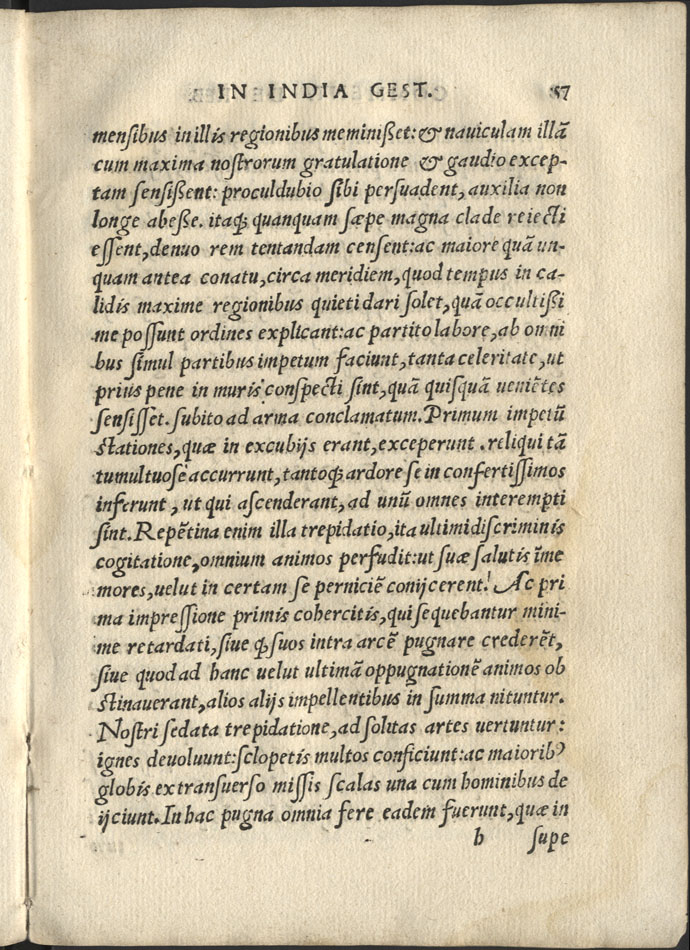 IN INDIA GEST. 57
mensibus in illis regionibus meminißet: & nauiculam illã
cum maxima nostrorum gratulatione & gaudio excep-
tam sensißent: proculdubio sibi persuadent, auxilia non
longe abeße. itaq; quanquam sæpe magna clade reiecti
essent, denuo rem tentandam censent: ac maiore quã un-
quam antea conatu, circa meridiem, quod tempus in ca-
lidis maxime regionibus quieti dari solet, quã occultißi
me possunt ordines explicant: ac partito labore, ab omni
bus simul partibus impetum faciunt, tanta celeritate, ut
prius pene in muris conspecti sint, quã quisquã ueniẽtes
sensisset. subito ad arma conclamatum. Primum impetũ
stationes, quæ in excubijs erant, exceperunt. reliqui tã
tumultuose accurrunt, tantoq; ardore se in confertissimos
inferunt, ut qui ascenderant, ad unũ omnes interempti
sint. Repẽtina enim illa trepidatio, ita ultimi discriminis
cogitatione, omnium animos perfudit: ut suæ salutis ĩme
mores, uelut in certam se perniciẽ conijcerent. Ac pri
ma impressione primis cohercitis, qui sequebantur mini-
me retardati, siue q; suos intra arcẽ pugnare crederẽt,
siue quod ad hanc uelut ultimã oppugnationẽ animos ob
stinauerant, alios alijs impellentibus in summa nituntur.
Nostri sedata trepidatione, ad solitas artes uertuntur:
ignes deuoluunt: sclopetis multos conficiunt: ac maiorib⁹
globis ex transuerso missis scalas una cum hominibus de
ijciunt. In hac pugna omnia fere eadem fuerunt, quæ in
h supe